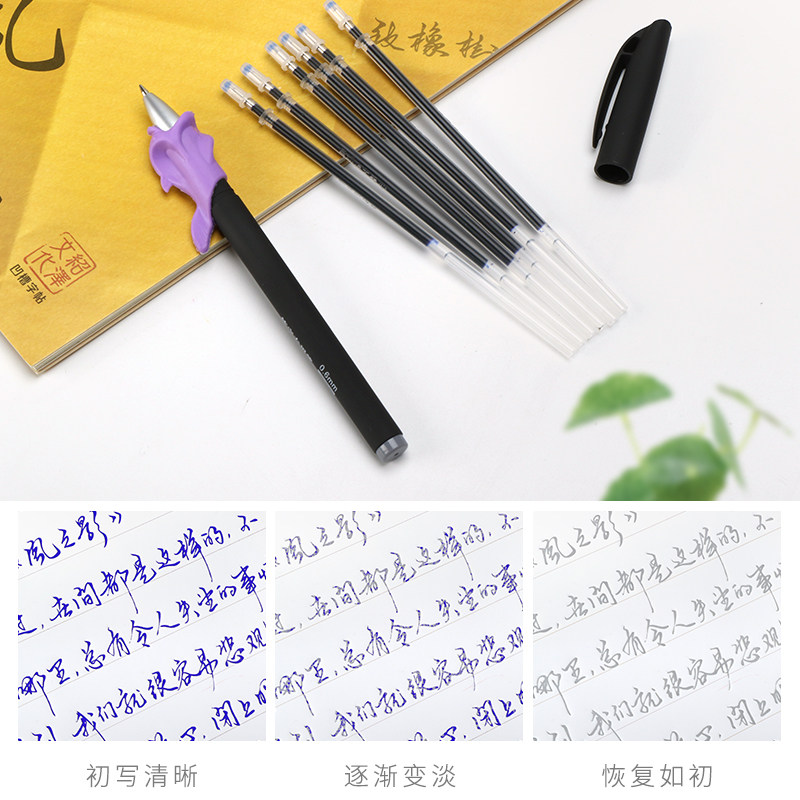 致橡樹
紹澤
文化
凹槽字帖
0.6mm
風之影》
不
过,在间都是这样的.
哪里,总有令人失望的事
我们就很容易悲观
闭上眼
風之影》
不
过,在间都是这样的.
哪里,总有令人失望的事
我们就很容易悲观
闭上眼
風之影》
不
过,在间都是这样的.
哪里,总有令人失望的事
我们就很容易悲观
闭上眼
初写清晰
逐渐变淡
恢复如初